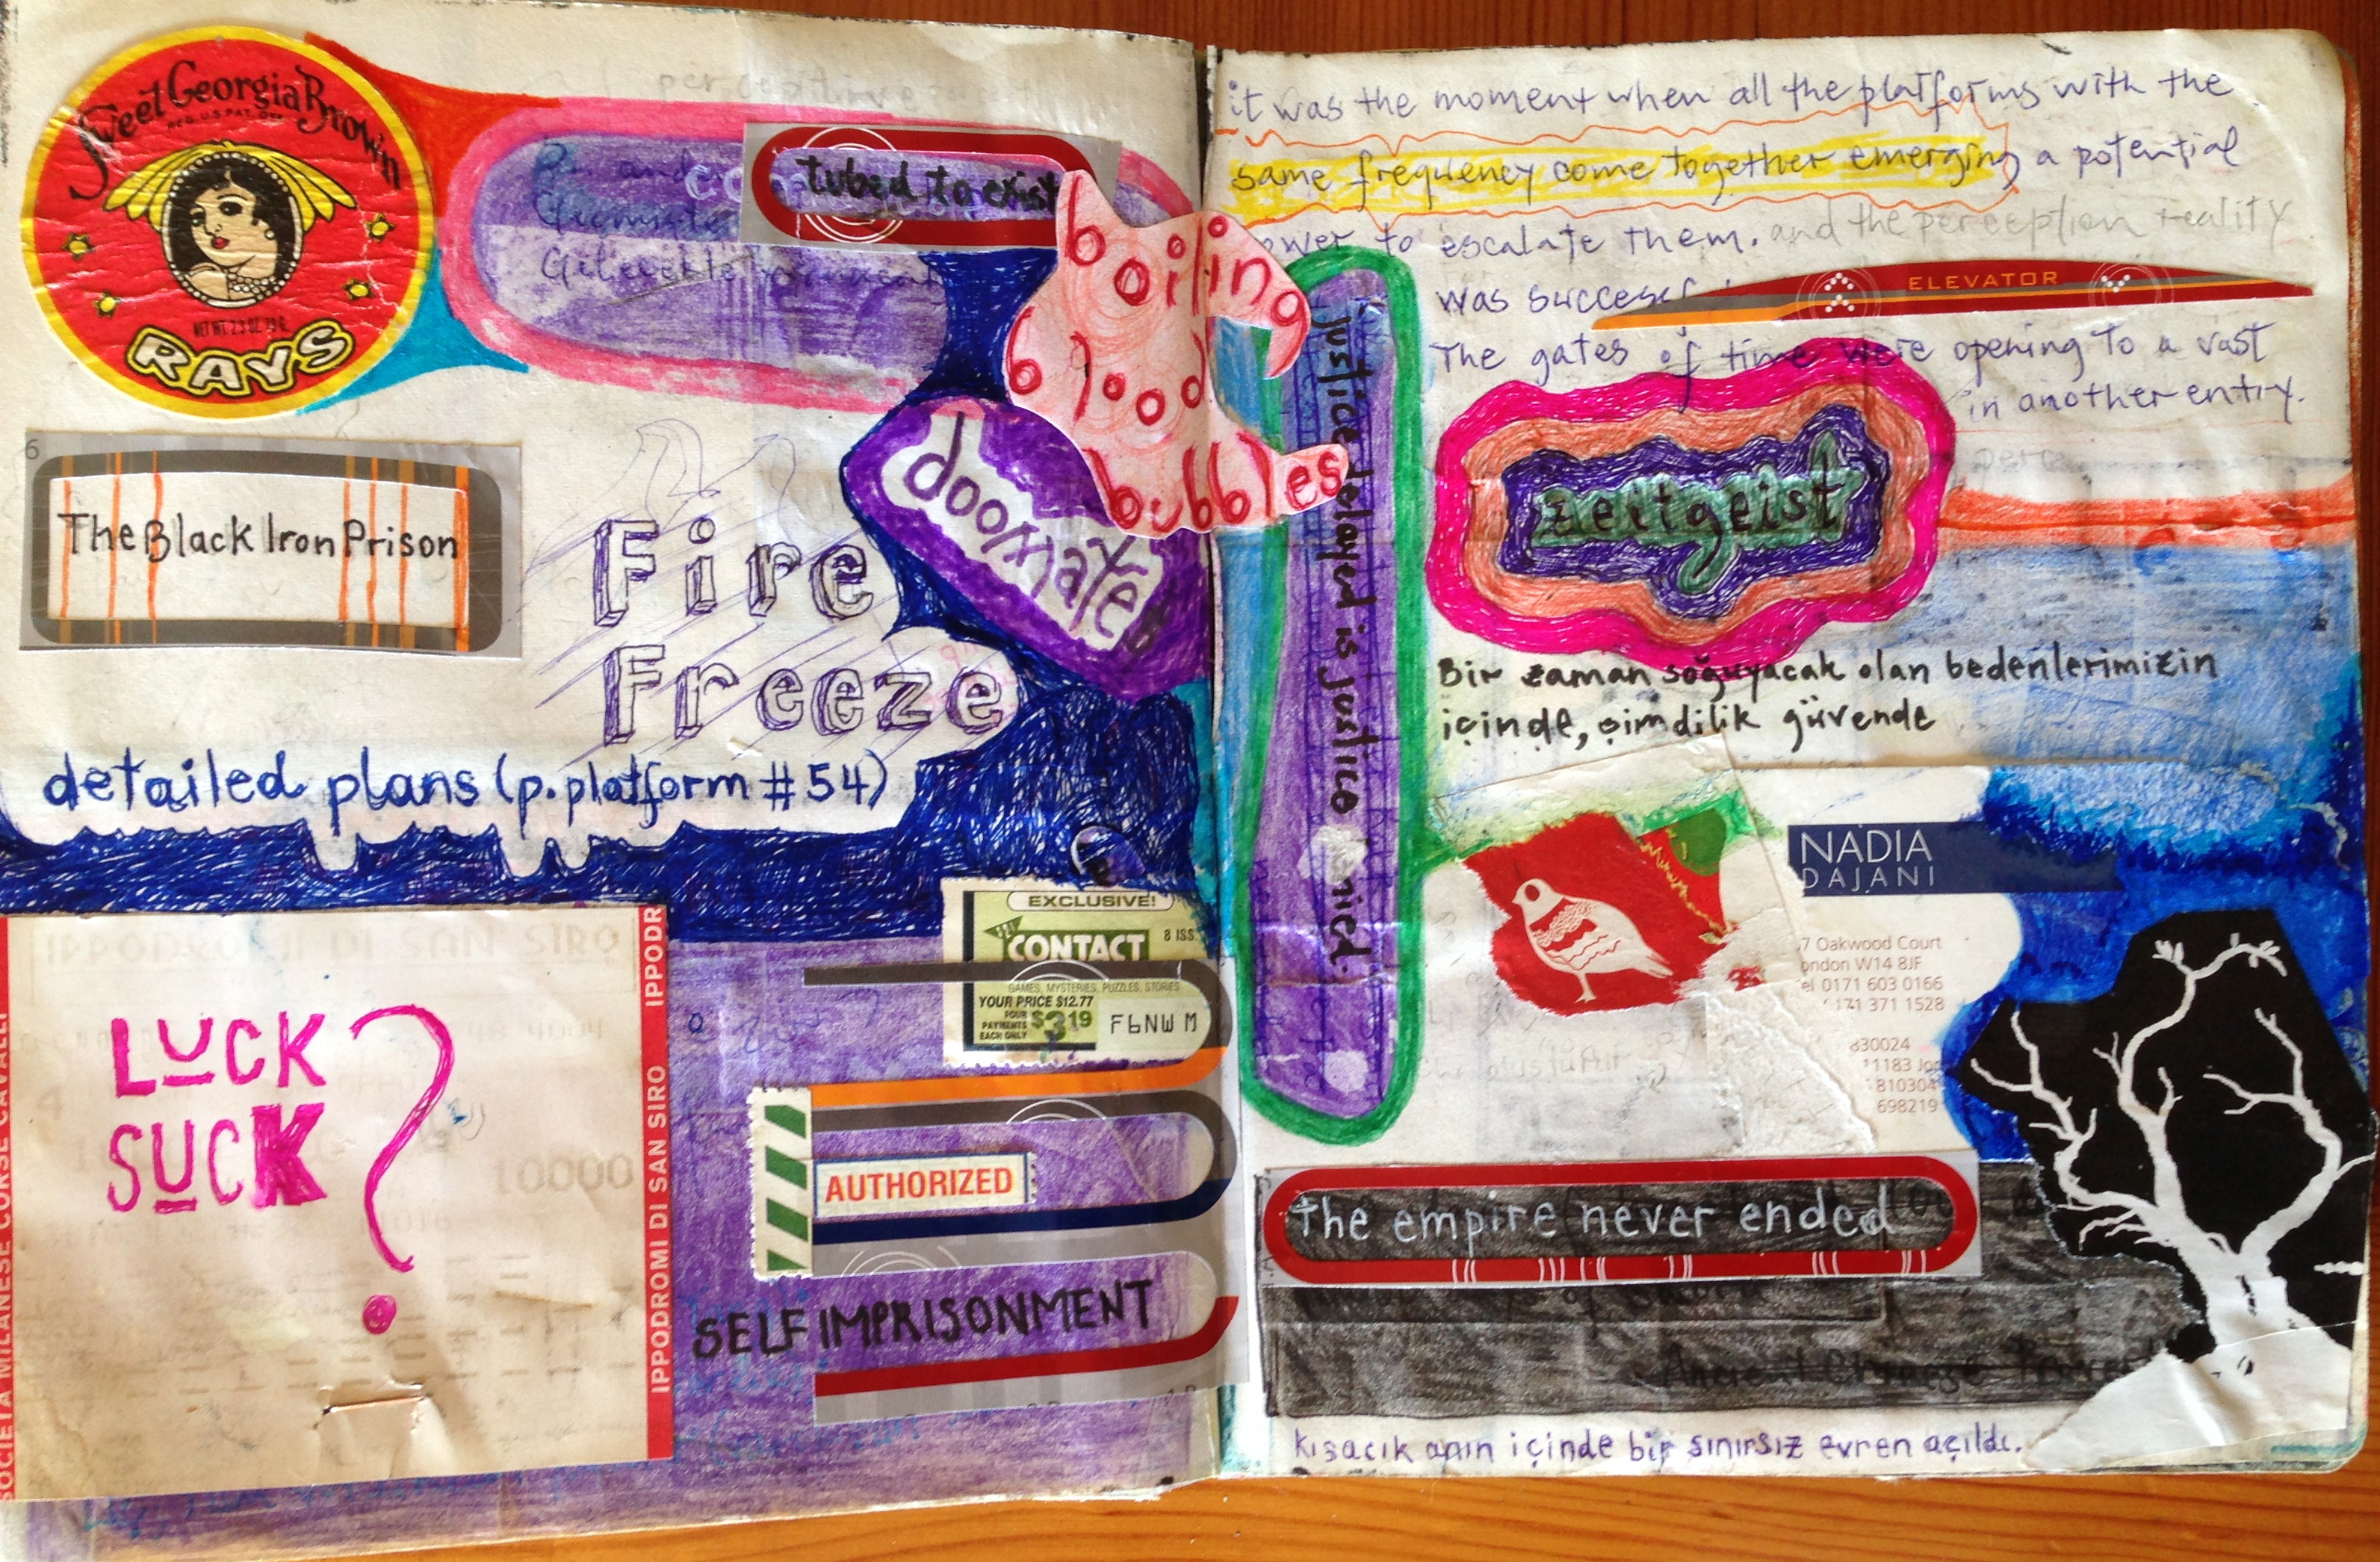 Sweet Georgia Brown
REG. U.S. PAT. OFF.
NET WT. 2.3 OZ.
RAYS
perceptive
tubed to exist
boiling
blood
bubbles
doomate
6
The Black Iron Prison
Fire
Freeze
detailed plans (p. platform #54)
IPPODROMI DI SAN SIRO
SOCIETA MILANESE CORSE CAVALLI
IPPODROMI DI SAN SIRO IPPODR
LUCK
SUCK ?
10000
EXCLUSIVE!
CONTACT
8 ISS.
GAMES, MYSTERIES, PUZZLES, STORIES
YOUR PRICE $12.77
FOUR
PAYMENTS
EACH ONLY
$3.19
F6NW M
AUTHORIZED
SELF IMPRISONMENT
it was the moment when all the platforms with the
same frequency come together emerging a potential
ower to escalate them. and the perception reality
was succes
ELEVATOR
The gates of time were opening to a vast
in another entry.
justice delayed is justice
nied.
zeitgeist
Bir zaman soğuyacak olan bedenlerimizin
içinde, şimdilik güvende
NADIA
DAJANI
7 Oakwood Court
ondon W14 8JF
el 0171 603 0166
171 371 1528
830024
11183 Jor
810304
698219
the empire never ended
kısacık anın içinde bir sınırsız evren açıldı.